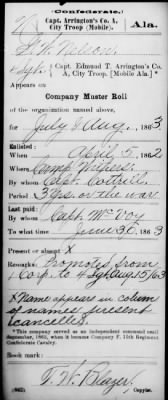 (Confederate.)
Capt. Arrington's Co. A,
City Troop (Mobile).
Ala.
Capt. Edmund T. Arrington's Co. A,
City Troop. [Mobile Ala.]*
Appears on
Company Muster Roll
of the organization named above,
for July & Aug., 1863
Enlisted:
When April 5, 1862
Where Camp
By whom Capt. Cottrill
Period 3 yrs or the war
Last paid:
By whom Capt. McVoy
To what time June 30, 1863
Present or absent X
Remarks: Promoted from
4 Corp. to 4 Sgt Aug 15/63
X Name appears in column
of names present
cancelled
*This company served as an independent command until
September, 1863, when it became Company F, 15th Regiment
Confederate Cavalry.
Book mark:
T. W. Blazer
(642)
Copyist.